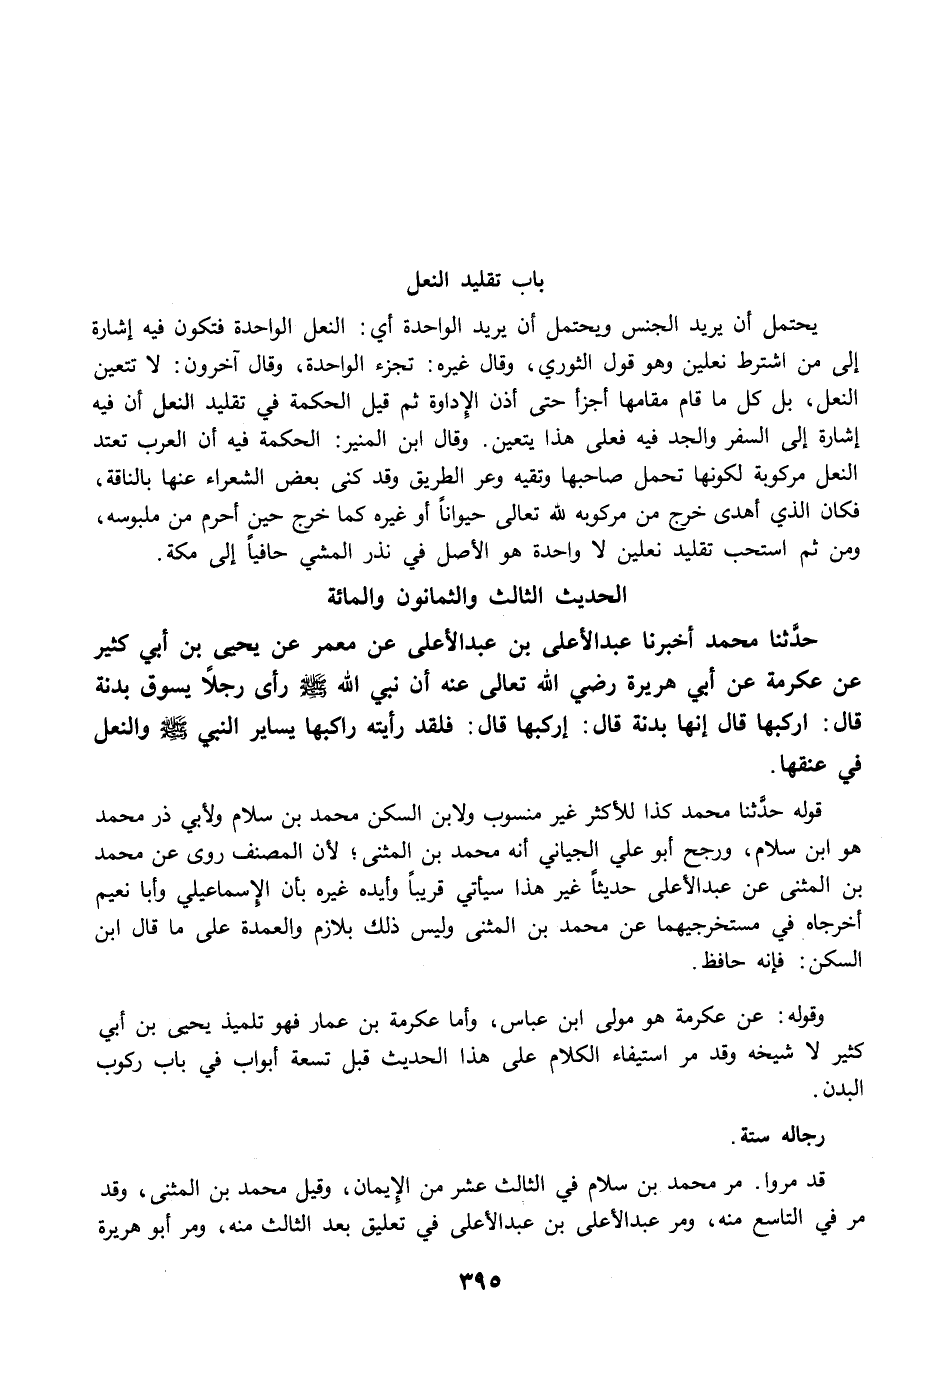 باب تقليد النعل
يحتمل أن يريد الجنس ويحتمل أن يريد الواحدة أي: النعل الواحدة فتكون فيه إشارة
إلى من اشترط نعلين وهو قول الثوري، وقال غيره: تجزء الواحدة، وقال آخرون: لا تتعين
النعل، بل كل ما قام مقامها أجزأ حتى أذن الإداوة ثم قيل الحكمة في تقليد النعل أن فيه
إشارة إلى السفر والجد فيه فعلى هذا يتعين. وقال ابن المنير: الحكمة فيه أن العرب تعتد
النعل مركوبة لكونها تحمل صاحبها وتقيه وعر الطريق وقد كنى بعض الشعراء عنها بالناقة،
فكان الذي أهدى خرج من مركوبه لله تعالى حيواناً أو غيره كما خرج حين أحرم من ملبوسه،
ومن ثم استحب تقليد نعلين لا واحدة هو الأصل في نذر المشي حافياً إلى مكة.
الحديث الثالث والثمانون والمائة
حدَّثنا محمد أخبرنا عبدالأعلى بن عبدالأعلى عن معمر عن يحيى بن أبي كثير
عن عكرمة عن أبي هريرة رضي الله تعالى عنه أن نبي الله ﷺ رأى رجلاً يسوق بدنة
قال: اركبها قال إنها بدنة قال: إركبها قال: فلقد رأيته راكبها يساير النبي ﷺ والنعل
في عنقها.
قوله حدَّثنا محمد كذا للأكثر غير منسوب ولابن السكن محمد بن سلام ولأبي ذر محمد
هو ابن سلام، ورجح أبو علي الجياني أنه محمد بن المثنى؛ لأن المصنف روى عن محمد
بن المثنى عن عبدالأعلى حديثاً غير هذا سيأتي قريباً وأيده غيره بأن الإسماعيلي وأبا نعيم
أخرجاه في مستخرجيهما عن محمد بن المثنى وليس ذلك بلازم والعمدة على ما قال ابن
السكن: فإنه حافظ.
وقوله: عن عكرمة هو مولى ابن عباس، وأما عكرمة بن عمار فهو تلميذ يحيى بن أبي
كثير لا شيخه وقد مر استيفاء الكلام على هذا الحديث قبل تسعة أبواب في باب ركوب
البدن.
رجاله ستة.
قد مروا. مر محمد بن سلام في الثالث عشر من الإيمان، وقيل محمد بن المثنى، وقد
مر في التاسع منه، ومر عبدالأعلى بن عبدالأعلى في تعليق بعد الثالث منه، ومر أبو هريرة
٣٩٥